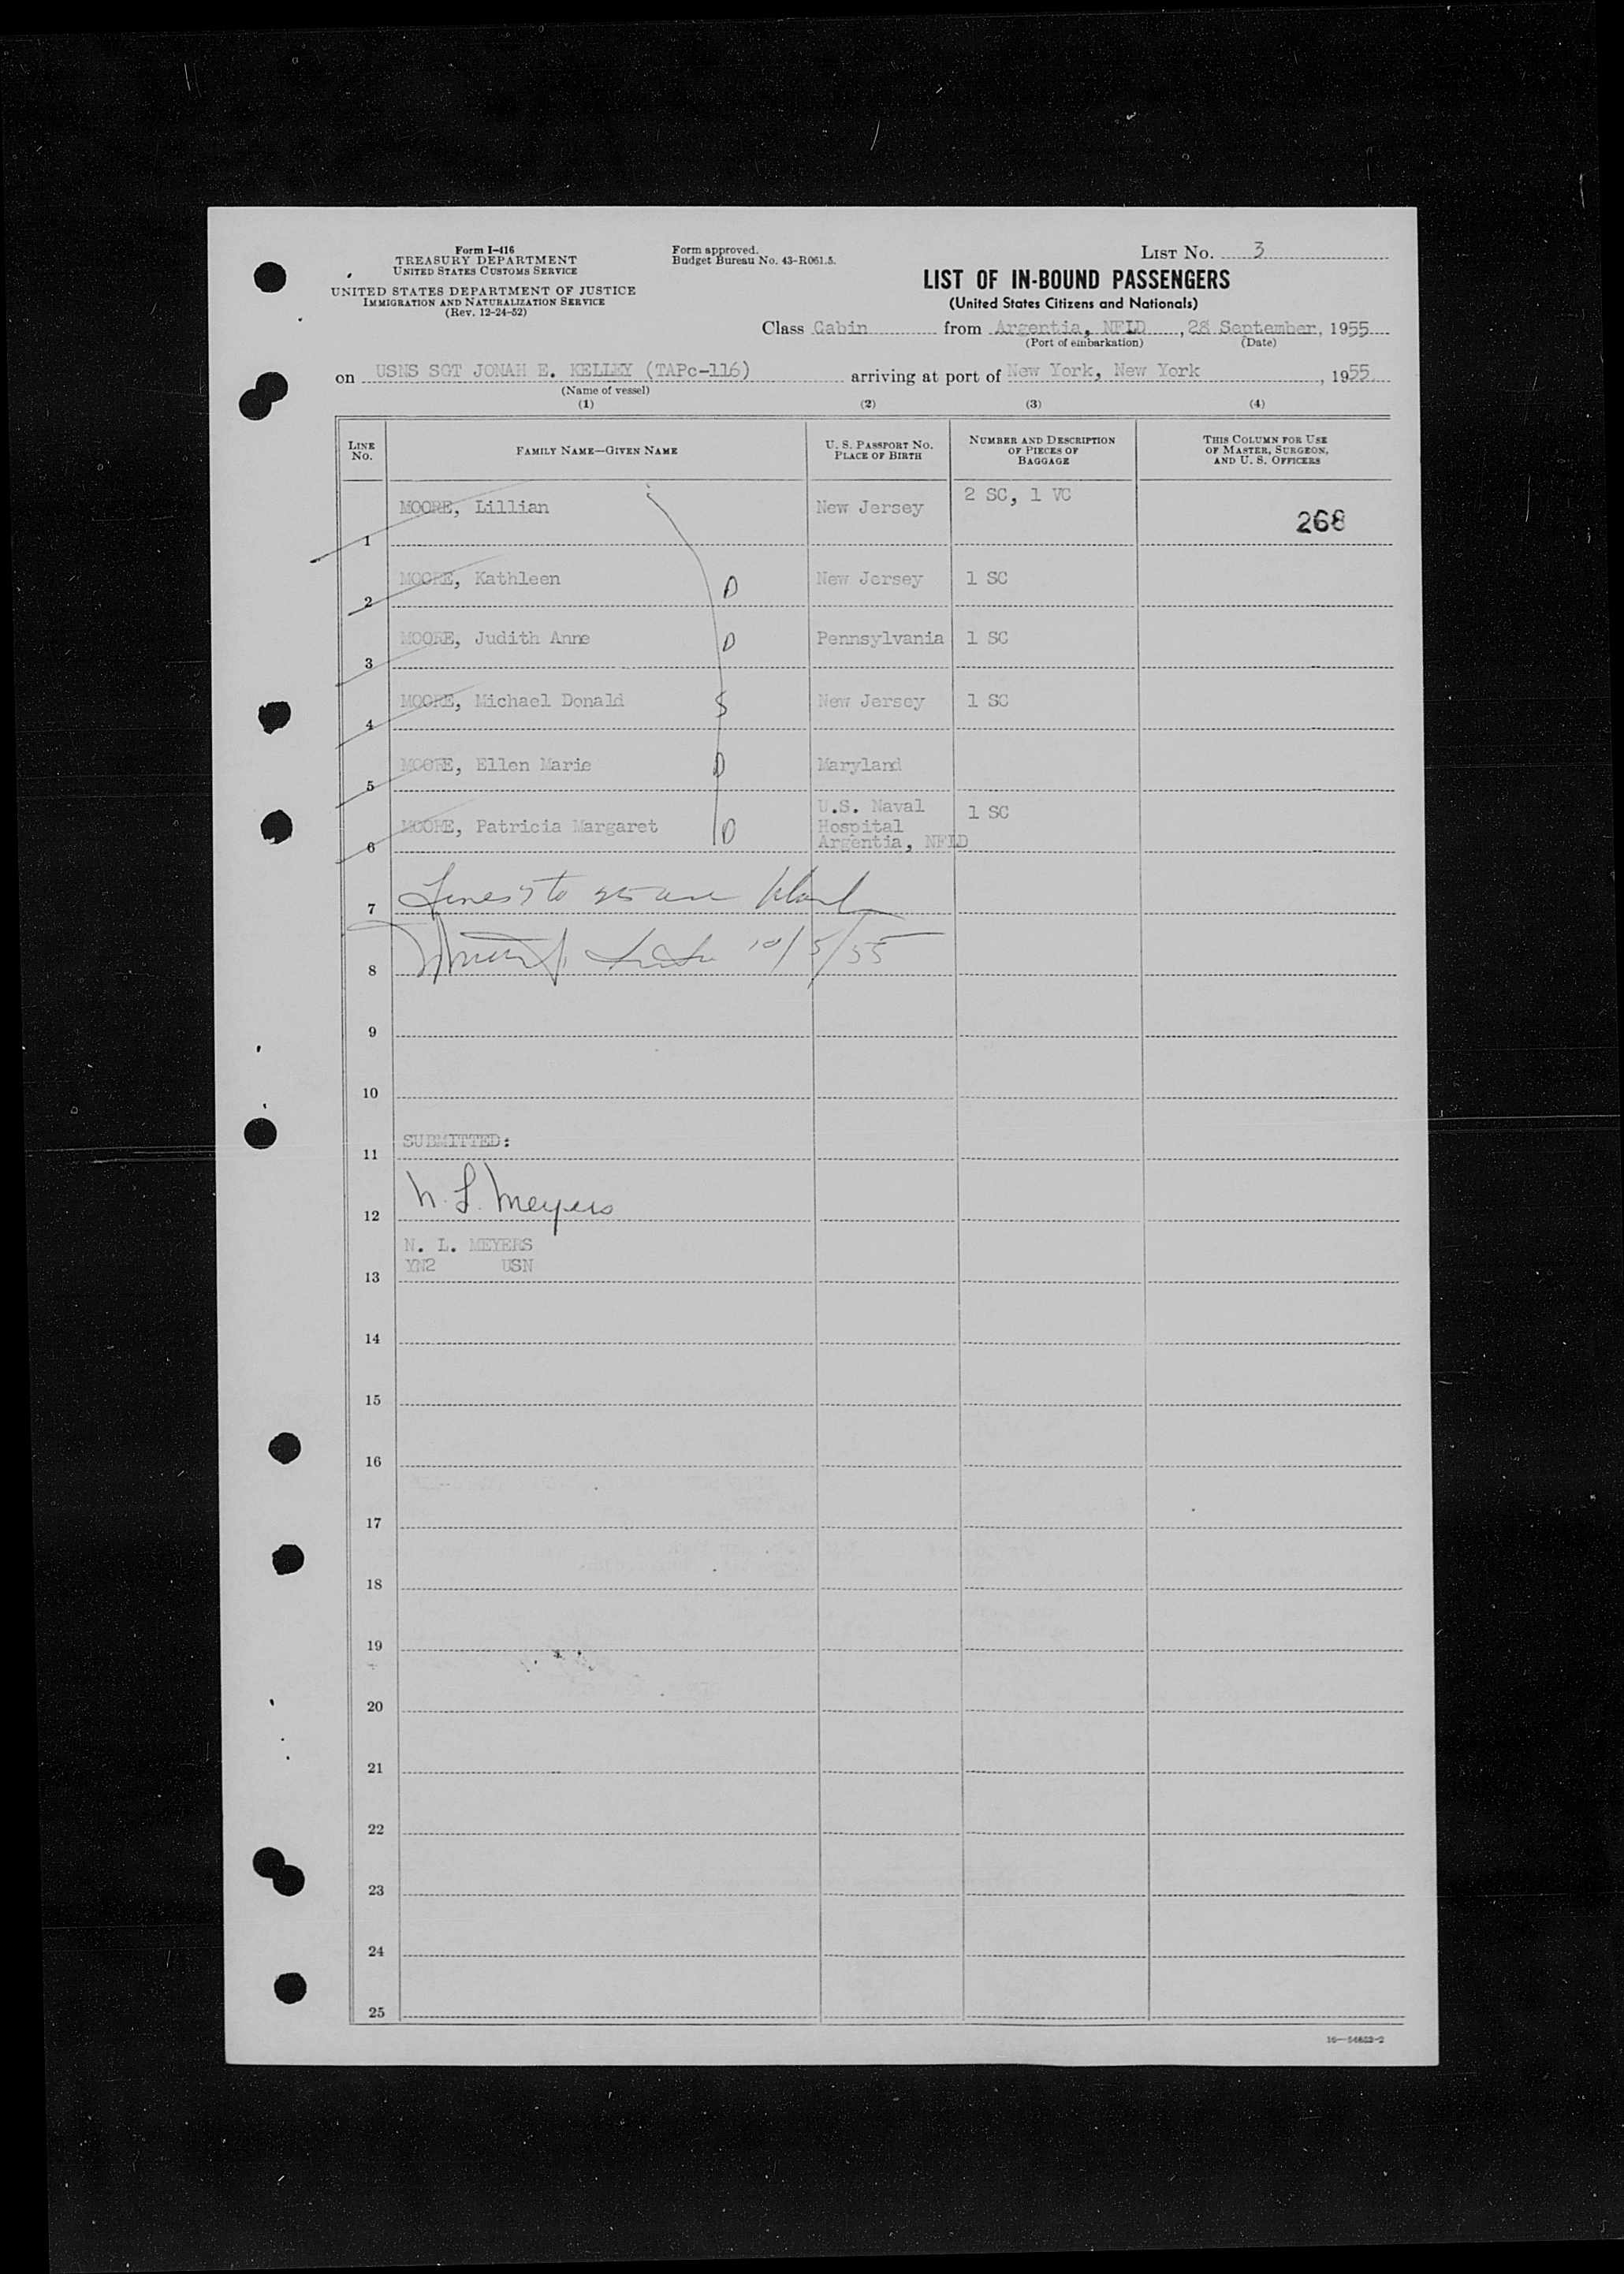 Form I-416
TREASURY DEPARTMENT
UNITED STATES CUSTOMS SERVICE
UNITED STATES DEPARTMENT OF JUSTICE
IMMIGRATION AND NATURALIZATION SERVICE
(Rev. 12-24-52)
Form approved.
Budget Bureau No. 43-R061.5.
LIST No. 3
LIST OF IN-BOUND PASSENGERS
(United States Citizens and Nationals)
Class Cabin from Argentia, NFLD, 28 September, 1955
(Port of embarkation) (Date)
on USNS SGT JONAH E. KELLEY (TAPc-116) arriving at port of New York, New York, 1955
(Name of vessel)
(1) (2) (3) (4)
LINE No. FAMILY NAME—GIVEN NAME U. S. PASSPORT No. PLACE OF BIRTH NUMBER AND DESCRIPTION OF PIECES OF BAGGAGE THIS COLUMN FOR USE OF MASTER, SURGEON, AND U. S. OFFICERS
1 MOORE, Lillian New Jersey 2 SC, 1 VC 268
2 MOORE, Kathleen D New Jersey 1 SC
3 MOORE, Judith Anne D Pennsylvania 1 SC
4 MOORE, Michael Donald S New Jersey 1 SC
5 MOORE, Ellen Marie D Maryland
6 MOORE, Patricia Margaret D U.S. Naval Hospital Argentia, NFLD 1 SC
7 Lines 7 to 25 are blank
8 10/5/55
9
10
11 SUBMITTED:
12 N. L. Meyers
N. L. MEYERS
13 YN2 USN
14
15
16
17
18
19
20
21
22
23
24
25